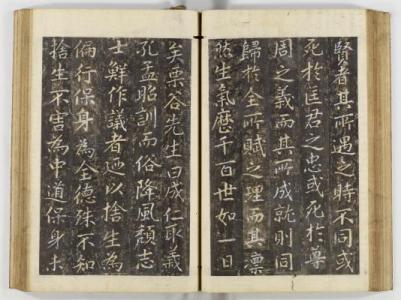 賢者其所遇之時不同或
死於匡君之忠或死於尊
周之義而其所成就則同
歸於全所賦之理而其凜
然生氣歷千百世如一日
矣栗谷先生曰成仁取義
孔孟昭訓而俗降風頹志
士鮮作議者廼以捨生為
偏行保身為全德殊不知
捨生不害為中道保身未